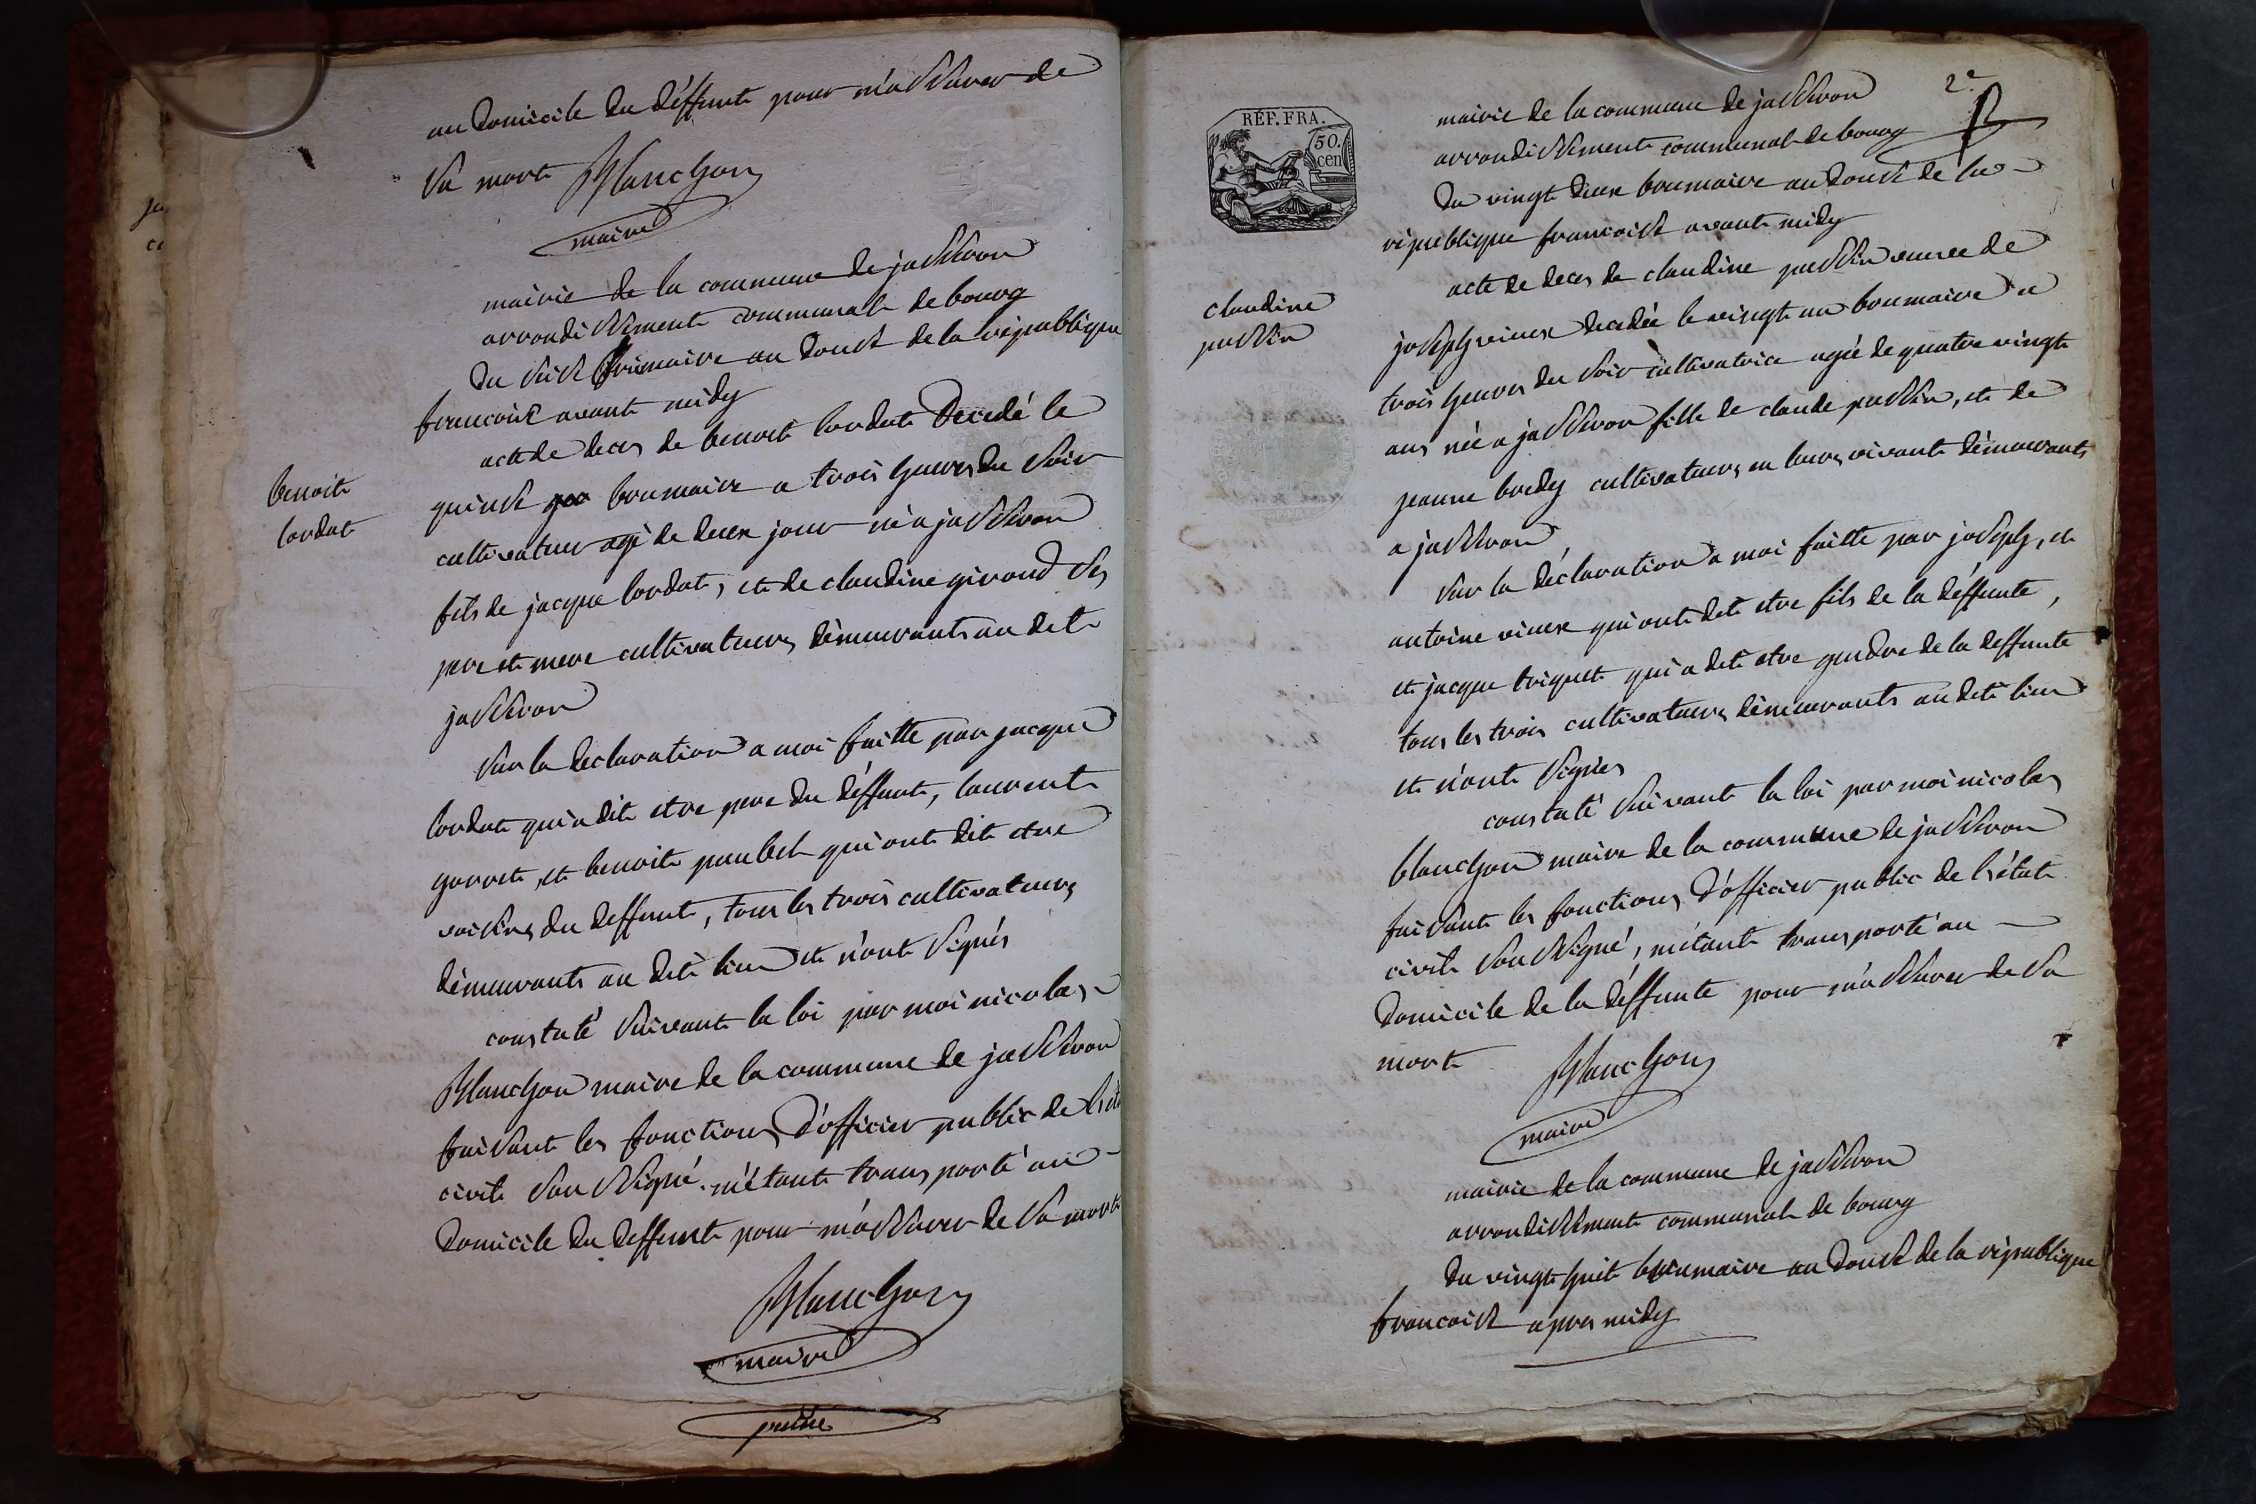 au domicile du déffunt pour m'assurer de
sa mort Blanchon
maire
mairie de la commune de jasseron
arrondissement communal de bourg
du seise frimaire an douse de la république
francoise avant midy
acte de deces de benoit cordat decedé le
benoit
cordat
quinse brumaire a trois heures du soir
cultivateur agé de deux jour né a jasseron
fils de jacque cordat, et de claudine giroud ses
pere et mere cultivateurs démeurants au dit
jasseron
sur la declaration a moi faitte par jacque
cordat qui a dit etre pere du déffunt, laurent
gorret, et benoit paubel qui ont dit etre
voisins du deffunt, tous les trois cultivateurs
démeurants au dit lieu et n'ont signés
constaté suivant la loi par moi nicolas
Blanchon maire de la commune de jasseron
faisant les fonctions d'officier public de l'état
civil soussigné, m'étant transporté au
domicile du deffunt pour m'assurer de sa mort
Blanchon
maire
2e
RÉP. FRA.
50.
cen
mairie de la commune de jasseron
arrondissement communal de bourg
du vingt deux brumaire an douse de la
république francoise avant midy
acte de deces de claudine pessin veuve de
claudine
pessin
joseph vieux decedée le vingt un brumaire a
trois heures du soir cultivatrice agée de quatre vingt
ans née a jasseron fille de claude pessin, et de
jeanne bredy cultivateurs en leurs vivant démeurants
a jasseron
sur la déclaration a moi faitte par joseph, et
antoine vieux qui ont dit etre fils de la déffunte,
et jacque triquet qui a dit etre gendre de la deffunte
tous les trois cultivateurs démeurants au dit lieu
et n'ont signés
constaté suivant la loi par moi nicolas
blanchon maire de la commune de jasseron
faisant les fonctions d'officier public de l'état
civil soussigné, m'étant transporté au
domicile de la déffunte pour m'assurer de sa
mort Blanchon
maire
mairie de la commune de jasseron
arrondissement communal de bourg
du vingt huit brumaire an douse de la république
francoise apres midy